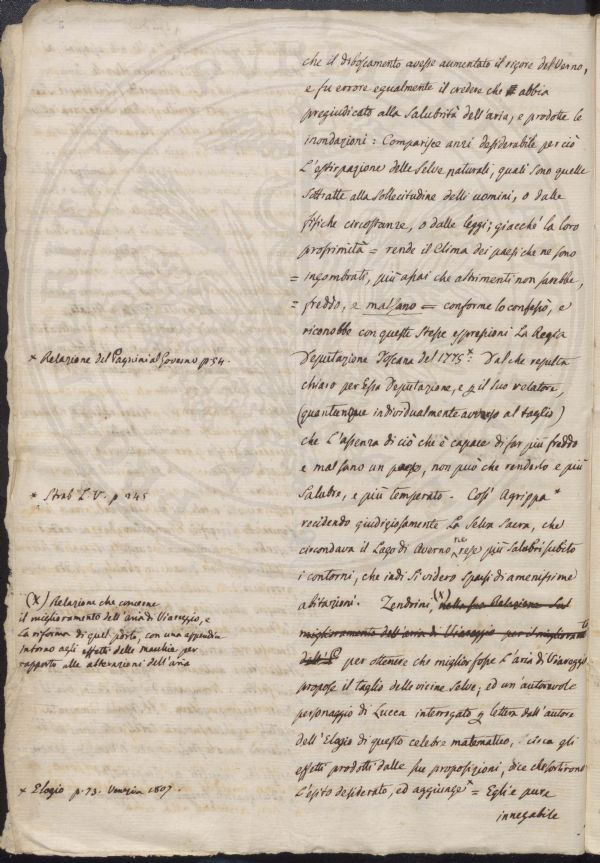 che il disboscamento avesse aumentato il rigore del Verno,
e fu errore egualmente il credere che abbia
pregiudicato alla salubrità dell'aria, e prodotte le
inondazioni: Comparisce anzi desiderabile per ciò
L'estirpazione delle Selve naturali, quali sono quelle
sottratte alla sollecitudine delli uomini, o dalle
fisiche circostanze, o dalle leggi; giacchè la loro
prossimità = rende il Clima dei paesi che ne sono
= ingombrati, più assai che altrimenti non sarebbe,
= freddo, e malsano = conforme lo confessò, e
riconobbe con queste stesse espressioni La Regia
Deputazione Toscana del 1775.* Dal che resulta
chiaro per Essa Deputazione, e p il suo relatore,
(quantunque individualmente avverso al taglio)
che L'assenza di ciò che è capace di far più freddo
e malsano un paese, non può che renderlo e più
salubre, e più temperato. Così Agrippa *
recidendo giudiziosamente La Selva Sacra, che
circondava il Lago di Averno ne rese più salubri subito
i contorni, che indi si videro sparsi di amenissime
abitazioni. Zendrini, (X) nella sua Relazione sul
miglioramento dell'aria di Viareggio per il miglioramto
dell' per ottenere che miglior fosse L'aria di Viareggio
propose il taglio delle vicine selve; ed un'autorevole
personaggio di Lucca interrogato p lettera dall'autore
dell'Elogio di questo celebre matematico, circa gli
effetti prodotti dalle sue proposizioni, dice che sortirono
L'esito desiderato, ed aggiunge * = Egli è pure
innegabile
* Relazione del Pagnini al Governo p. 54.
* Strab L. V. p. 245
(X) Relazione che concerne
il miglioramento dell'aria di Viareggio, e
La riforma di quel porto, con una appendice
intorno agli effetti delle macchie per
rapporto alle alterazioni dell'aria
* Elogio p. 73. Venezia 1807.